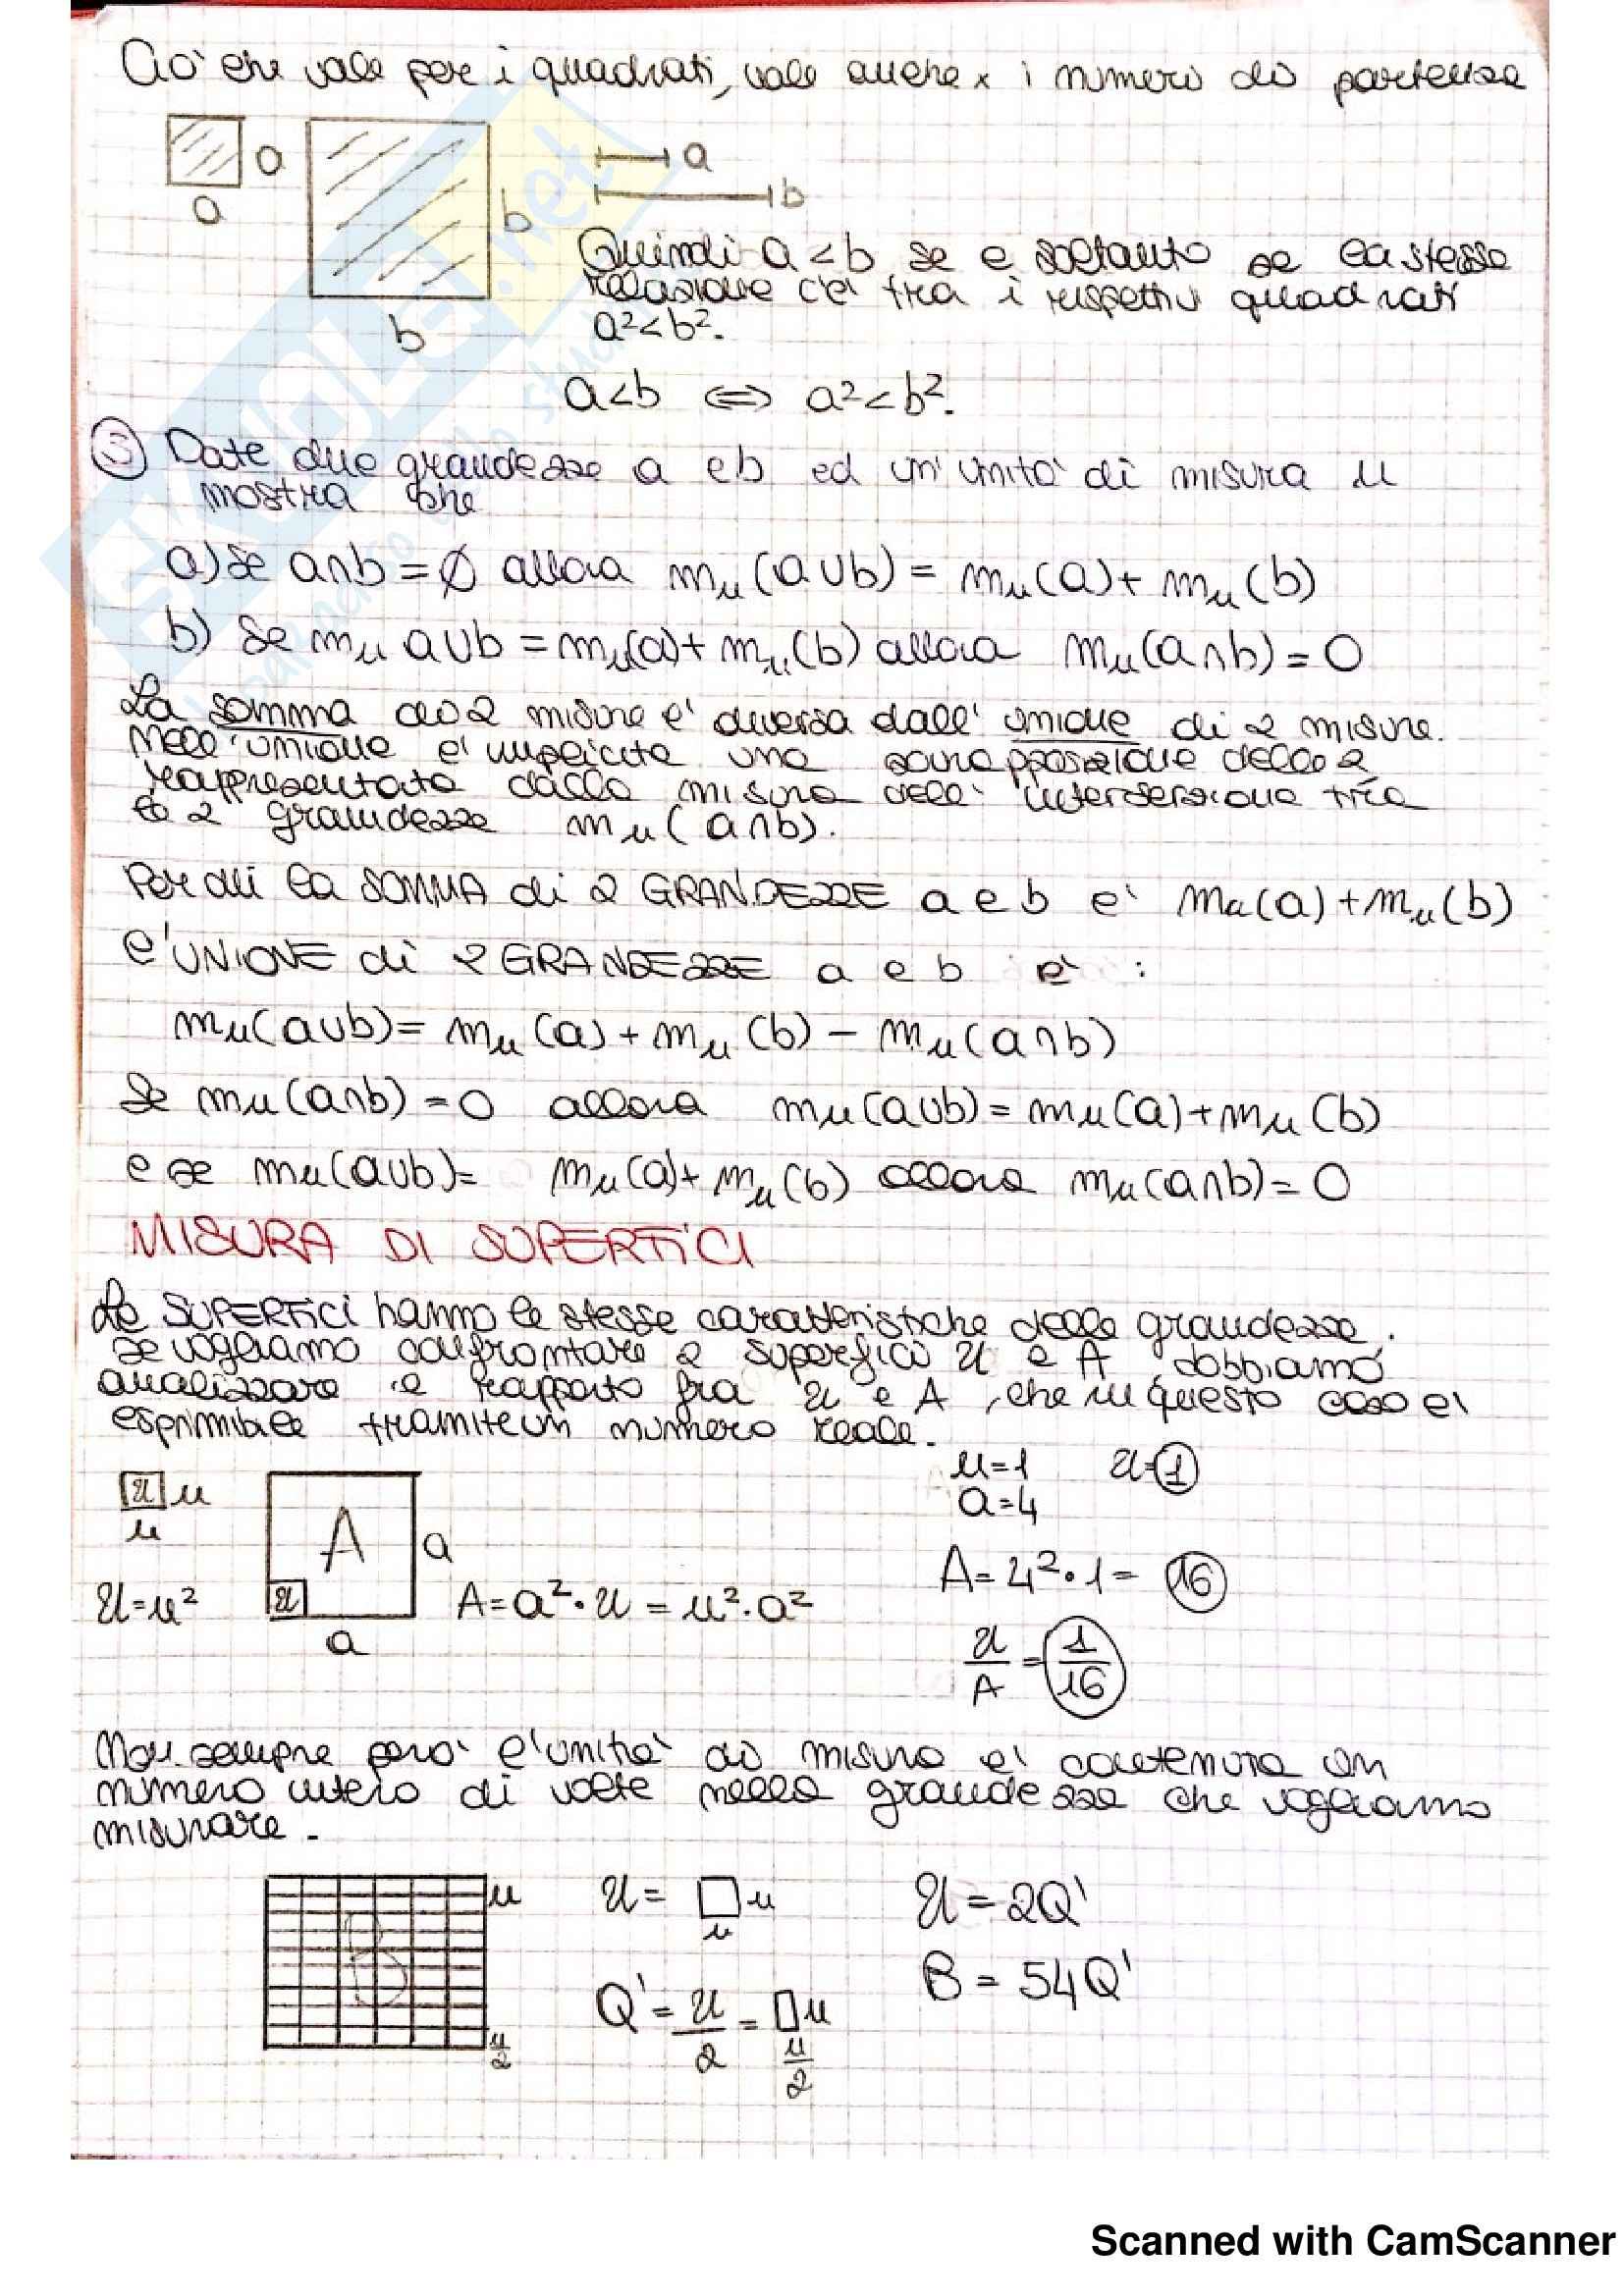 Ciò che vale per i quadrati, vale anche x i numeri di partenza
a
a
b
b
a
b
Quindi a<b se e soltanto se la stessa
relazione c'è tra i rispettivi quadrati
a²<b².
a<b ⇔ a²<b².
5 Date due grandezze a e b ed un'unità di misura u
mostra che
a) se a∩b=∅ allora mu(a∪b)= mu(a)+mu(b)
b) se mu a∪b = mu(a)+ mu(b) allora mu(a∩b)=0
La somma di 2 misure è diversa dall'unione di 2 misure.
Nell'unione è implicita una sovrapposizione delle 2
rappresentata dalla misura dell'intersezione tra
le 2 grandezze mu(a∩b).
Per cui la SOMMA di 2 GRANDEZZE a e b è mu(a)+mu(b)
l'UNIONE di 2 GRANDEZZE a e b è :
mu(a∪b)= mu(a)+mu(b)-mu(a∩b)
Se mu(a∩b)=0 allora mu(a∪b)=mu(a)+mu(b)
e se mu(a∪b)= mu(a)+mu(b) allora mu(a∩b)=0
MISURA DI SUPERFICI
Le SUPERFICI hanno le stesse caratteristiche delle grandezze.
Se vogliamo confrontare 2 superfici U e A dobbiamo
analizzare il rapporto fra U e A, che in questo caso è
esprimibile tramite un numero reale.
u=1 U=1
a=4
U u
u
A
a
U
a
U=u²
A=a²·U=u²·a²
A=4²·1= 16
U/A = 1/16
Non sempre però l'unità di misura è contenuta un
numero intero di volte nella grandezza che vogliamo
misurare.
B
u
u/2
U= □u
u
U=2Q'
B=54Q'
Q'=U/2=□u
u/2
SKUOLA.net
Scanned with CamScanner